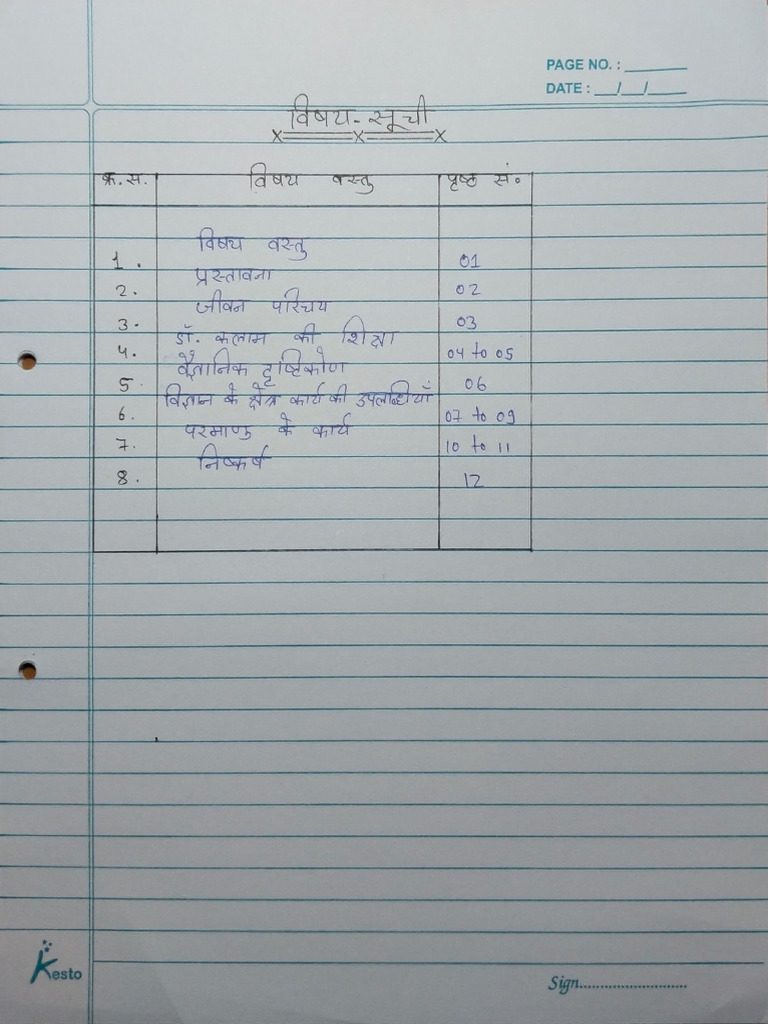 PAGE NO. : ______
DATE : __/__/____
विषय-सूची
क्र.स. विषय वस्तु पृष्ठ सं.
1. विषय वस्तु 01
2. प्रस्तावना 02
3. जीवन परिचय 03
4. डॉ. कलाम की शिक्षा 04 to 05
5. वैज्ञानिक दृष्टिकोण 06
6. विज्ञान के क्षेत्र कार्य की उपलब्धियाँ 07 to 09
7. परमाणु के कार्य 10 to 11
8. निष्कर्ष 12
Kesto
Sign..........................